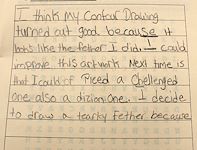 I think my Contour Drawing
turned out good because it
looks like the fether I did. I could
improve this artwork Next time is
that I could of Priced a Challenged
one also a dizion one. I decide
to draw a fether because